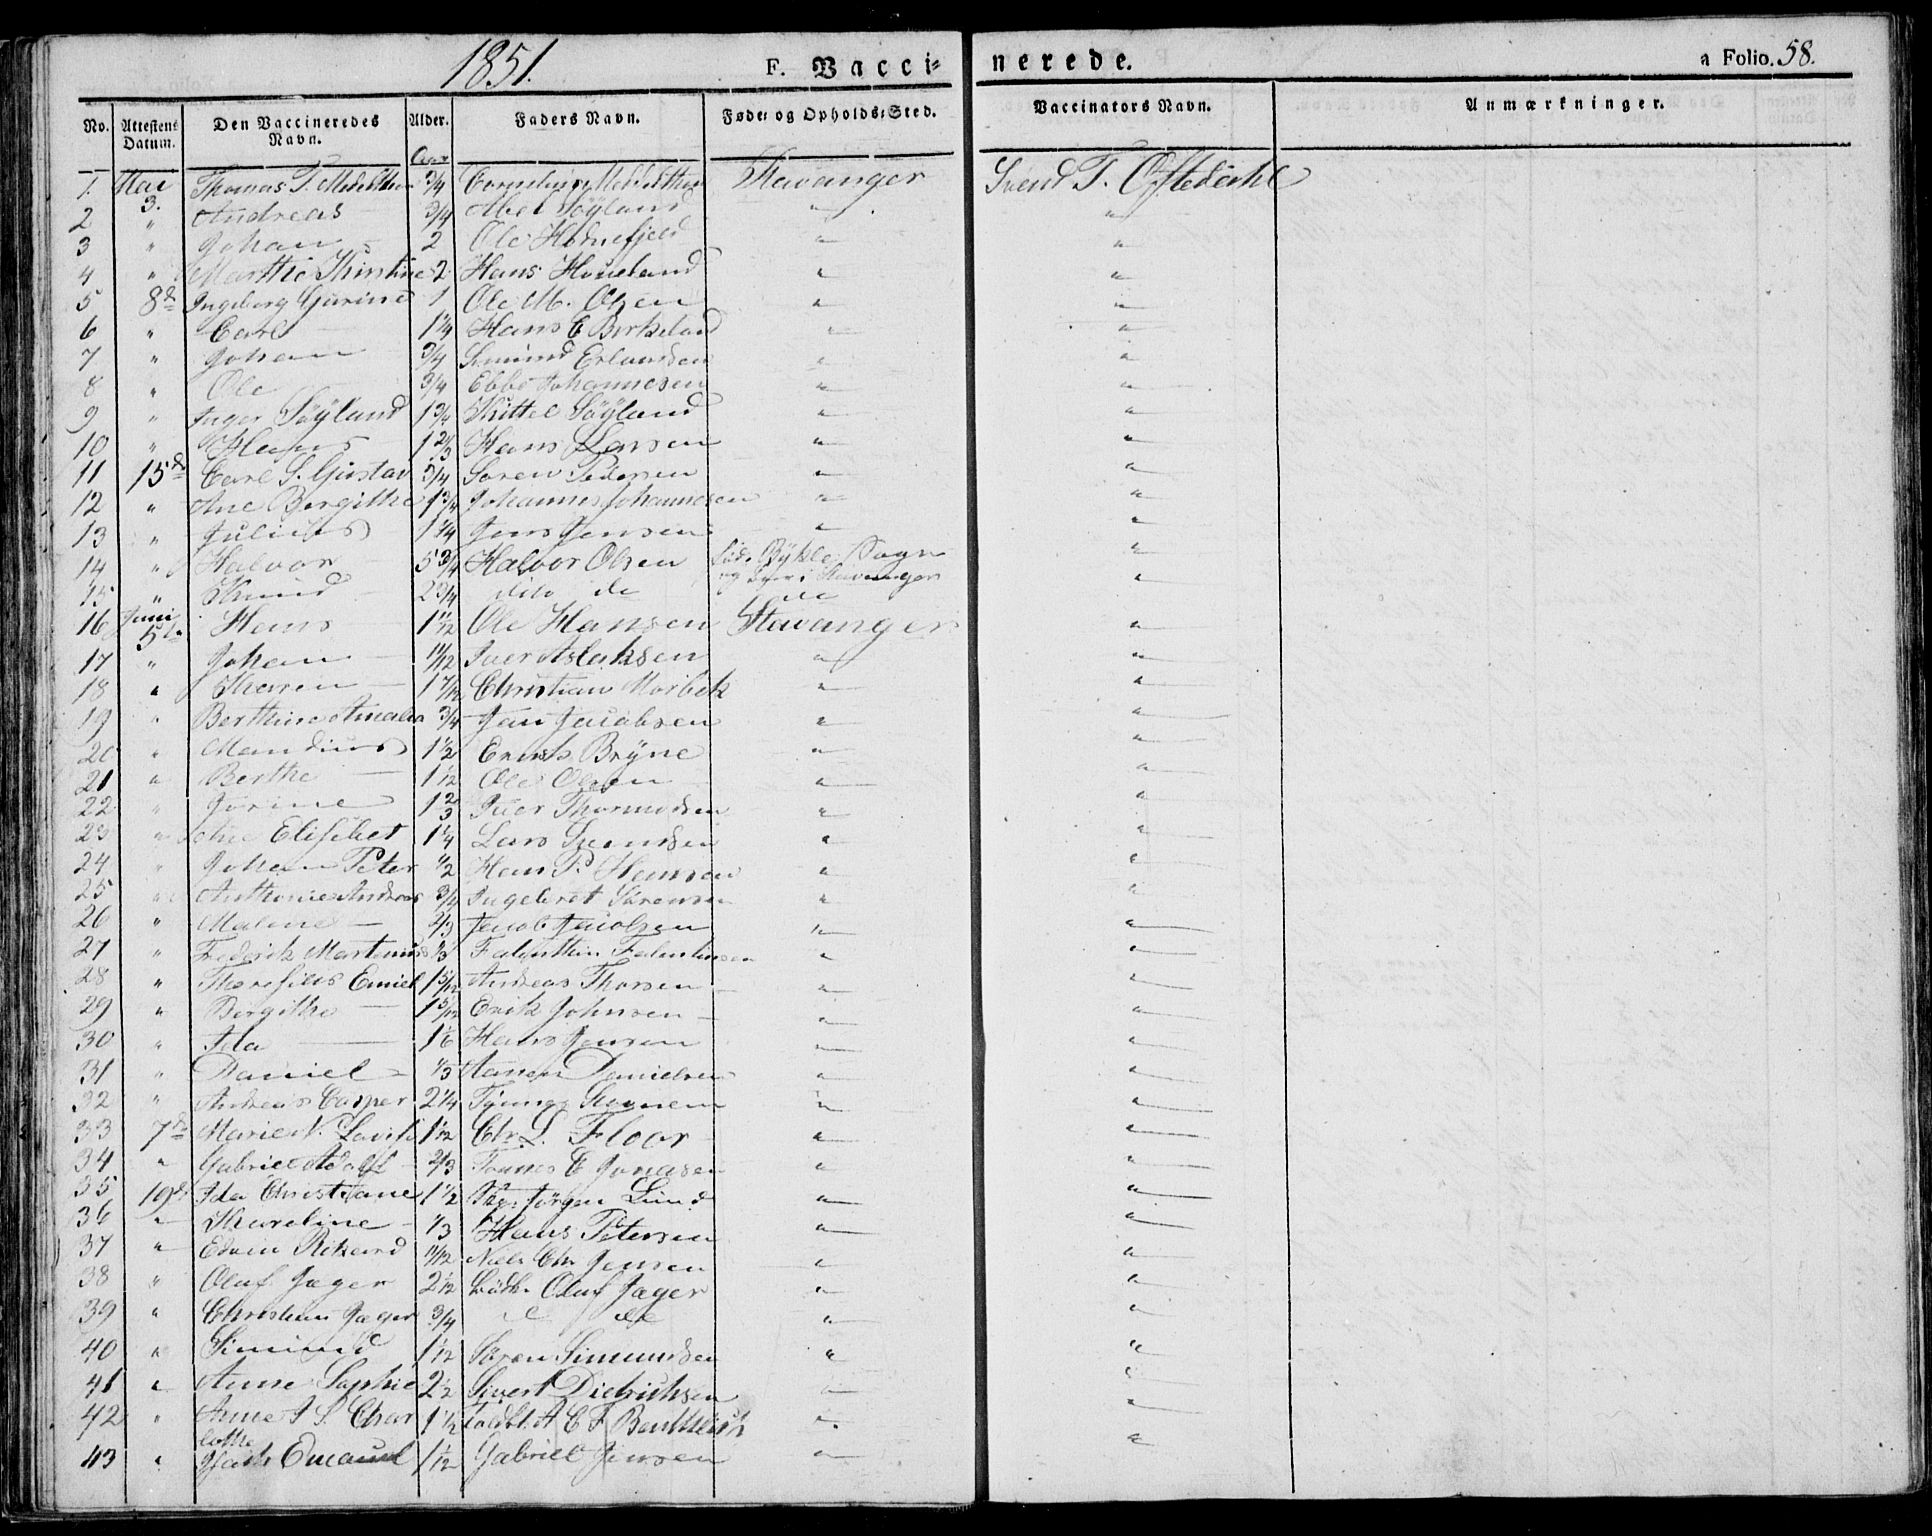 1851.
F. Vacci=
nerede.
a Folio. 58.
No. Attestens Datum. Den Vaccineredes Navn. Alder. Faders Navn. Føde= og Opholds=Sted. Vaccinators Navn. Anmærkninger.
1. Mai 3. Thomas T. 3/4 Stavanger Svend T. Oftedahl
2 " Andreas 3/4 Abel Søyland " "
3 " Johan 2 Ole " "
4 " Marthe Thistine 2 Hans Houeland " "
5 8de Ingeborg Gurine 1 Ole M. Olsen " "
6 " Carl 1 1/4 Hans C Birkeland " "
7 " Johan 3/4 Simund Erlandsen " "
8 " Ole 3/4 Ebbe Johannesen " "
9 " Inger Søyland 1 3/4 Kittel Søyland " "
10 " Hans 1 2/3 Hans Larsen " "
11 15de Carl S. Gustav 3/4 Søren Pedersen " "
12 " Ane Bergithe 1 3/4 Johannes Johannesen " "
13 " Julius 1 1/4 Jens Jensen " "
14 " Halvor 5 3/4 Halvor Olsen Fød. Bykle Sogn "
og boer i Stavanger
15 " Knud 2 3/4 dito do do "
16 Juni 5te Hans 1 1/2 Ole Hansen Stavanger "
17 " Johan 11/12 Iver Aslaksen " "
18 " Karen 1 7/12 Christian Morbek " "
19 " Berthine Amalia 3/4 Jan Jacobsen " "
20 " Mandius 1 1/2 Bryne " "
21 " Berthe 1 1/12 Ole Olsen " "
22 " Jorine 1 2/3 Iver Thormodsen " "
23 " Ane Elisebet 1 1/4 Lars Svendsen " "
24 " Johan Peter 1/2 Hans P. Hansen " "
25 " Anthonie Andreas 3/4 Ingebret Sørensen " "
26 " Maline 2/3 Jacob Jacobsen " "
27 " Frederik Martinius 1/3 Falenthin Falentinsen " "
28 " Emiel 1 5/12 Andreas Thorsen " "
29 " Bergithe 1 5/12 Erik Johnsen " "
30 " Ida 1 1/6 Hans Jensen " "
31 " Daniel 1/3 Danielsen " "
32 " Andreas Casper 2 1/4 " "
33 7de Marie N. Lovise 1 1/12 Chr. L. Floor " "
34 " Gabriel Adolf 2/3 Tønnes E Jonasen " "
35 19de Ida Christiane 1 1/2 Jørgen Lund " "
36 " Kareline 1/3 Hans Petersen " "
37 " Edvin Rikard 11/12 Niels Chr Jensen " "
38 " Oluf Jæger 2 1/12 Oluf Jæger " "
39 " Christian Jæger 3/4 do do " "
40 " Simund 1 1/12 Søren Simundsen " "
41 " Anne Sophie 2 1/2 Sivert Diedrichsen " "
42 " Anne A S. Char 1 1/2 A C F " "
lotte
43 " Emanuel 1 1/12 Gabriel Jensen " "